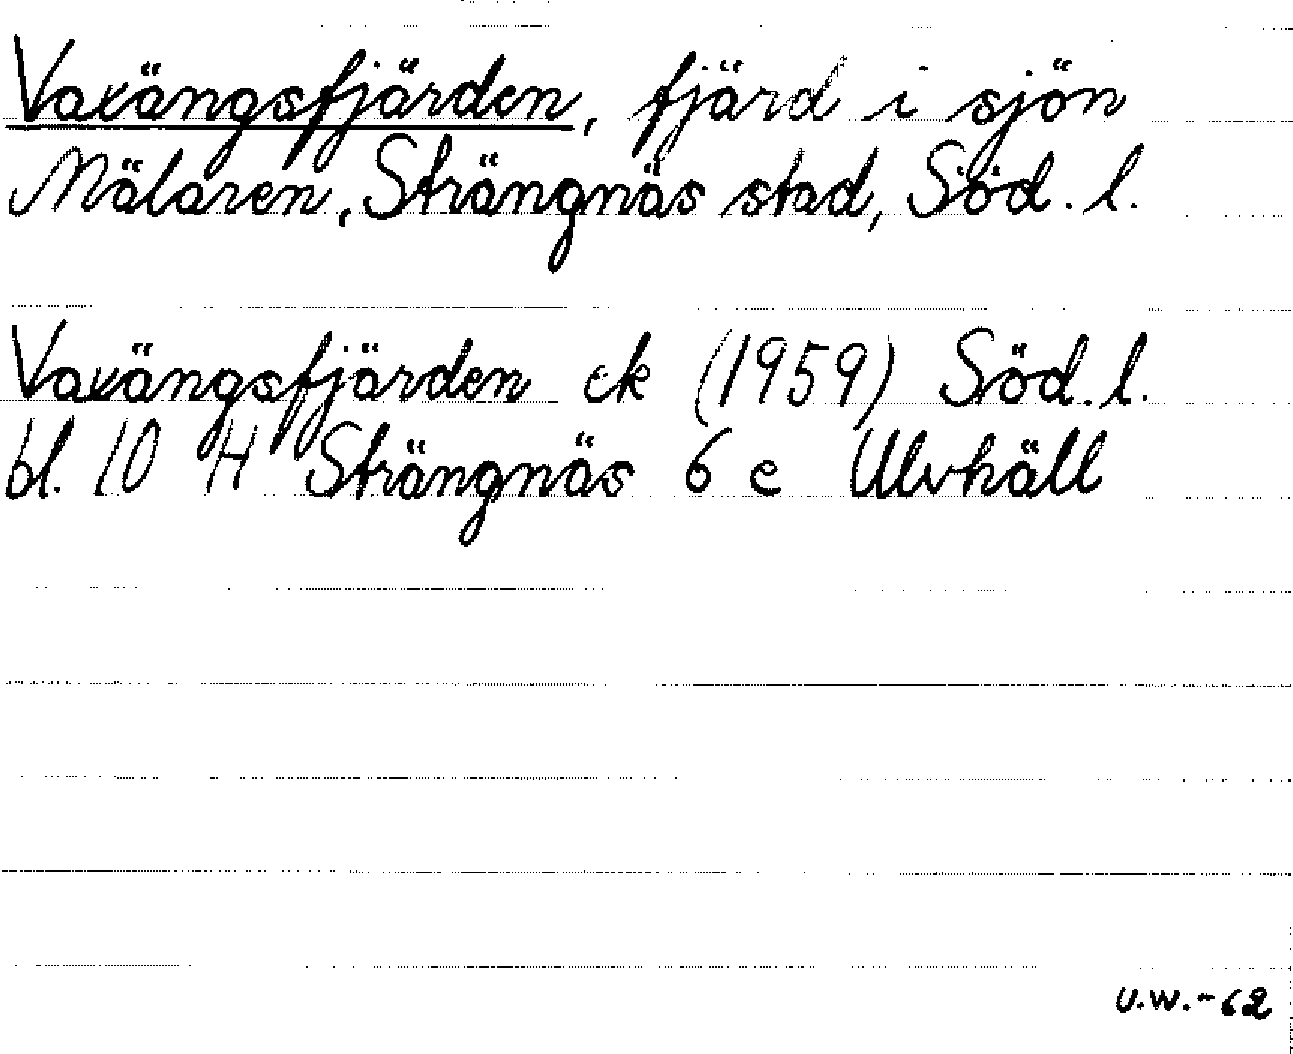 Vaxängsfjärden, fjärd i sjön
Mälaren, Strängnäs stad, Söd. l.
Vaxängsfjärden ek (1959) Söd. l.
bl. 10 H Strängnäs 6 e Ulvhäll
U.W.-62